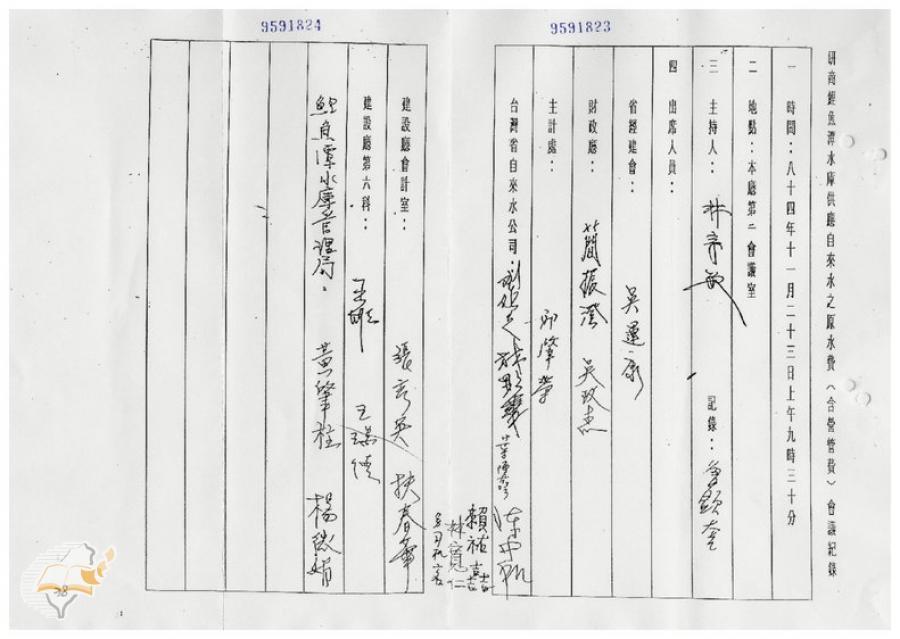 9591823
研商鯉魚潭水庫供應自來水之原水費（含營管費）會議紀錄
一 時間：八十四年十一月二十三日上午九時三十分
二 地點：本廳第二會議室
三 主持人： 記錄：
四 出席人員：
省經建會： 吳運康
財政廳： 簡振澄 吳政杰
主計處： 邱肇榮
台灣省自來水公司：
賴祐喆
林寬仁
9591824
建設廳會計室： 張秀英 扶春華
建設廳第六科： 王瑞德
鯉魚潭水庫管理局： 黃肇柱 楊淑娟